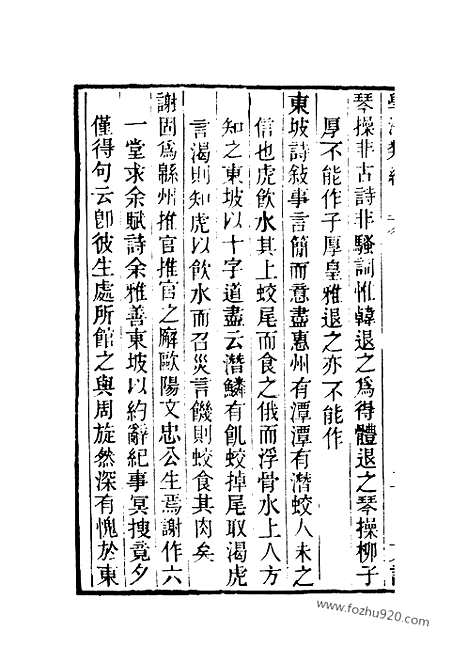 琴操非古詩非騷詞惟韓退之為得體退之琴操柳子
厚不能作子厚皇雅退之亦不能作
東坡詩敍事言簡而意盡惠州有潭潭有潛蛟人未之
信也虎飲水其上蛟尾而食之俄而浮骨水上人方
知之東坡以十字道盡云潛鱗有飢蛟掉尾取渴虎
言渴則知虎以飲水而召災言饑則蛟食其肉矣
謝固為縣州推官推官之廨歐陽文忠公生焉謝作六
一堂求余賦詩余雅善東坡以約辭紀事冥搜竟夕
僅得句云卽彼生處所館之與周旋然深有愧於東
www.fozhu920.com